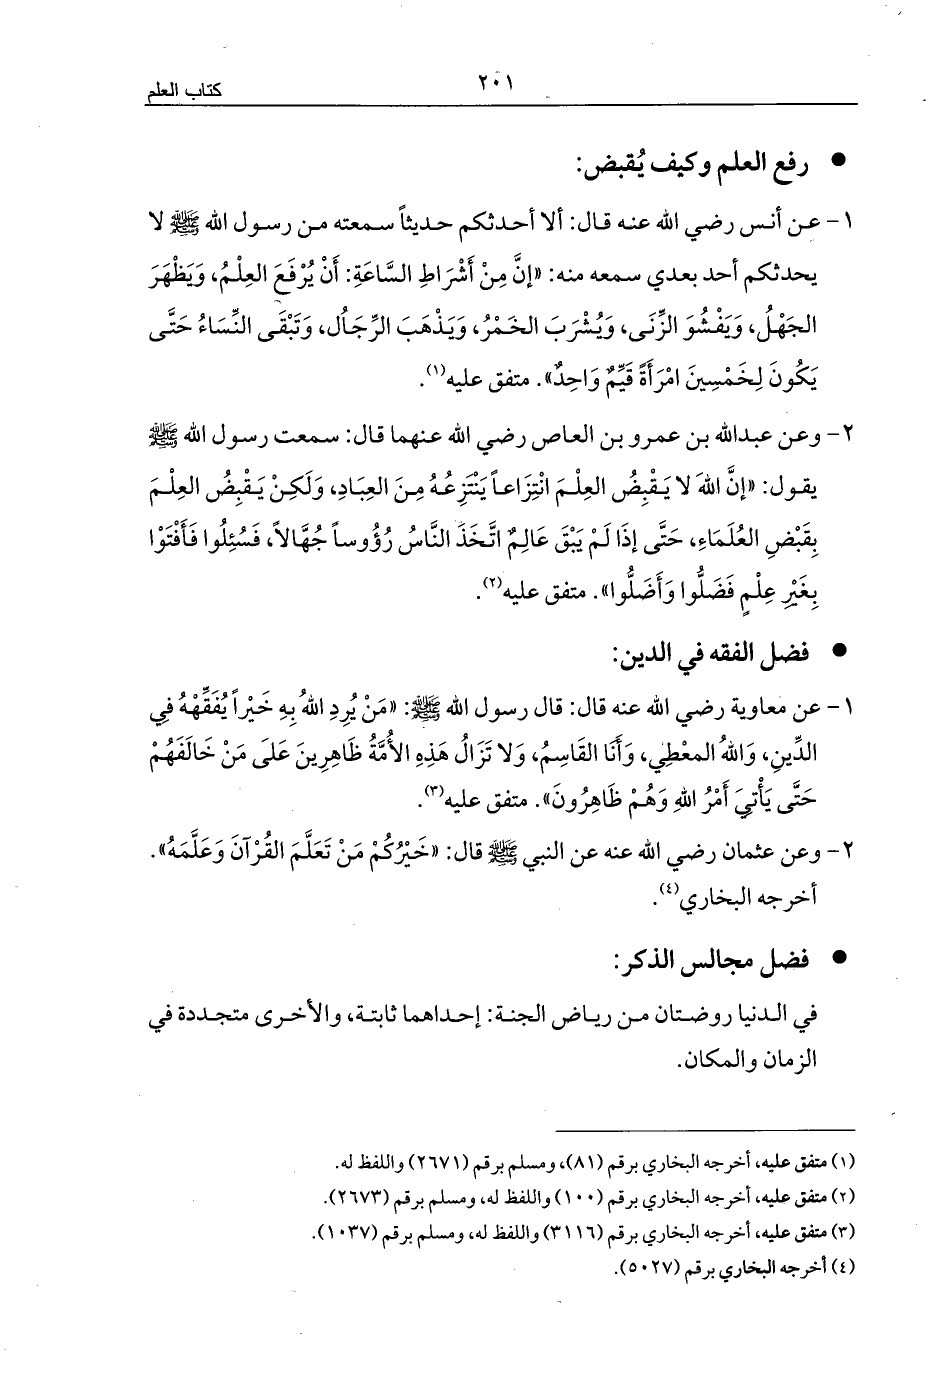 كتاب العلم
٢٠١
● رفع العلم وكيف يُقبض:
١- عن أنس رضي الله عنه قال: ألا أحدثكم حديثاً سمعته من رسول الله ﷺ لا
يحدثكم أحد بعدي سمعه منه: «إنَّ مِنْ أَشْرَاطِ السَّاعَةِ: أَنْ يُرْفَعَ العِلْمُ، وَيَظْهَرَ
الجَهْلُ، وَيَفْشُوَ الزِّنَى، وَيُشْرَبَ الخَمْرُ، وَيَذْهَبَ الرِّجَالُ، وَتَبْقَى النِّسَاءُ حَتَّى
يَكُونَ لِخَمْسِينَ امْرَأَةً قَيِّمٌ وَاحِدٌ». متفق عليه(١).
٢- وعن عبدالله بن عمرو بن العاص رضي الله عنهما قال: سمعت رسول الله ﷺ
يقول: «إنَّ اللهَ لا يَقْبِضُ العِلْمَ انْتِزَاعاً يَنْتَزِعُهُ مِنَ العِبَادِ، وَلَكِنْ يَقْبِضُ العِلْمَ
بِقَبْضِ العُلَمَاءِ، حَتَّى إذَا لَمْ يَبْقَ عَالِمٌ اتَّخَذَ النَّاسُ رُؤُوساً جُهَّالاً، فَسُئِلُوا فَأَفْتَوْا
بِغَيْرِ عِلْمٍ فَضَلُّوا وَأَضَلُّوا». متفق عليه(٢).
● فضل الفقه في الدين:
١- عن معاوية رضي الله عنه قال: قال رسول الله ﷺ: «مَنْ يُرِدِ اللهُ بِهِ خَيْراً يُفَقِّهْهُ فِي
الدِّينِ، وَاللهُ المعْطِي، وَأَنَا القَاسِمُ، وَلا تَزَالُ هَذِهِ الأُمَّةُ ظَاهِرِينَ عَلَى مَنْ خَالَفَهُمْ
حَتَّى يَأْتِيَ أَمْرُ اللهِ وَهُمْ ظَاهِرُونَ». متفق عليه(٣).
٢- وعن عثمان رضي الله عنه عن النبي ﷺ قال: «خَيْرُكُمْ مَنْ تَعَلَّمَ القُرْآنَ وَعَلَّمَهُ».
أخرجه البخاري(٤).
● فضل مجالس الذكر:
في الدنيا روضتان من رياض الجنة: إحداهما ثابتة، والأخرى متجددة في
الزمان والمكان.
(١) متفق عليه، أخرجه البخاري برقم (٨١)، ومسلم برقم (٢٦٧١) واللفظ له.
(٢) متفق عليه، أخرجه البخاري برقم (١٠٠) واللفظ له، ومسلم برقم (٢٦٧٣).
(٣) متفق عليه، أخرجه البخاري برقم (٣١١٦) واللفظ له، ومسلم برقم (١٠٣٧).
(٤) أخرجه البخاري برقم (٥٠٢٧).